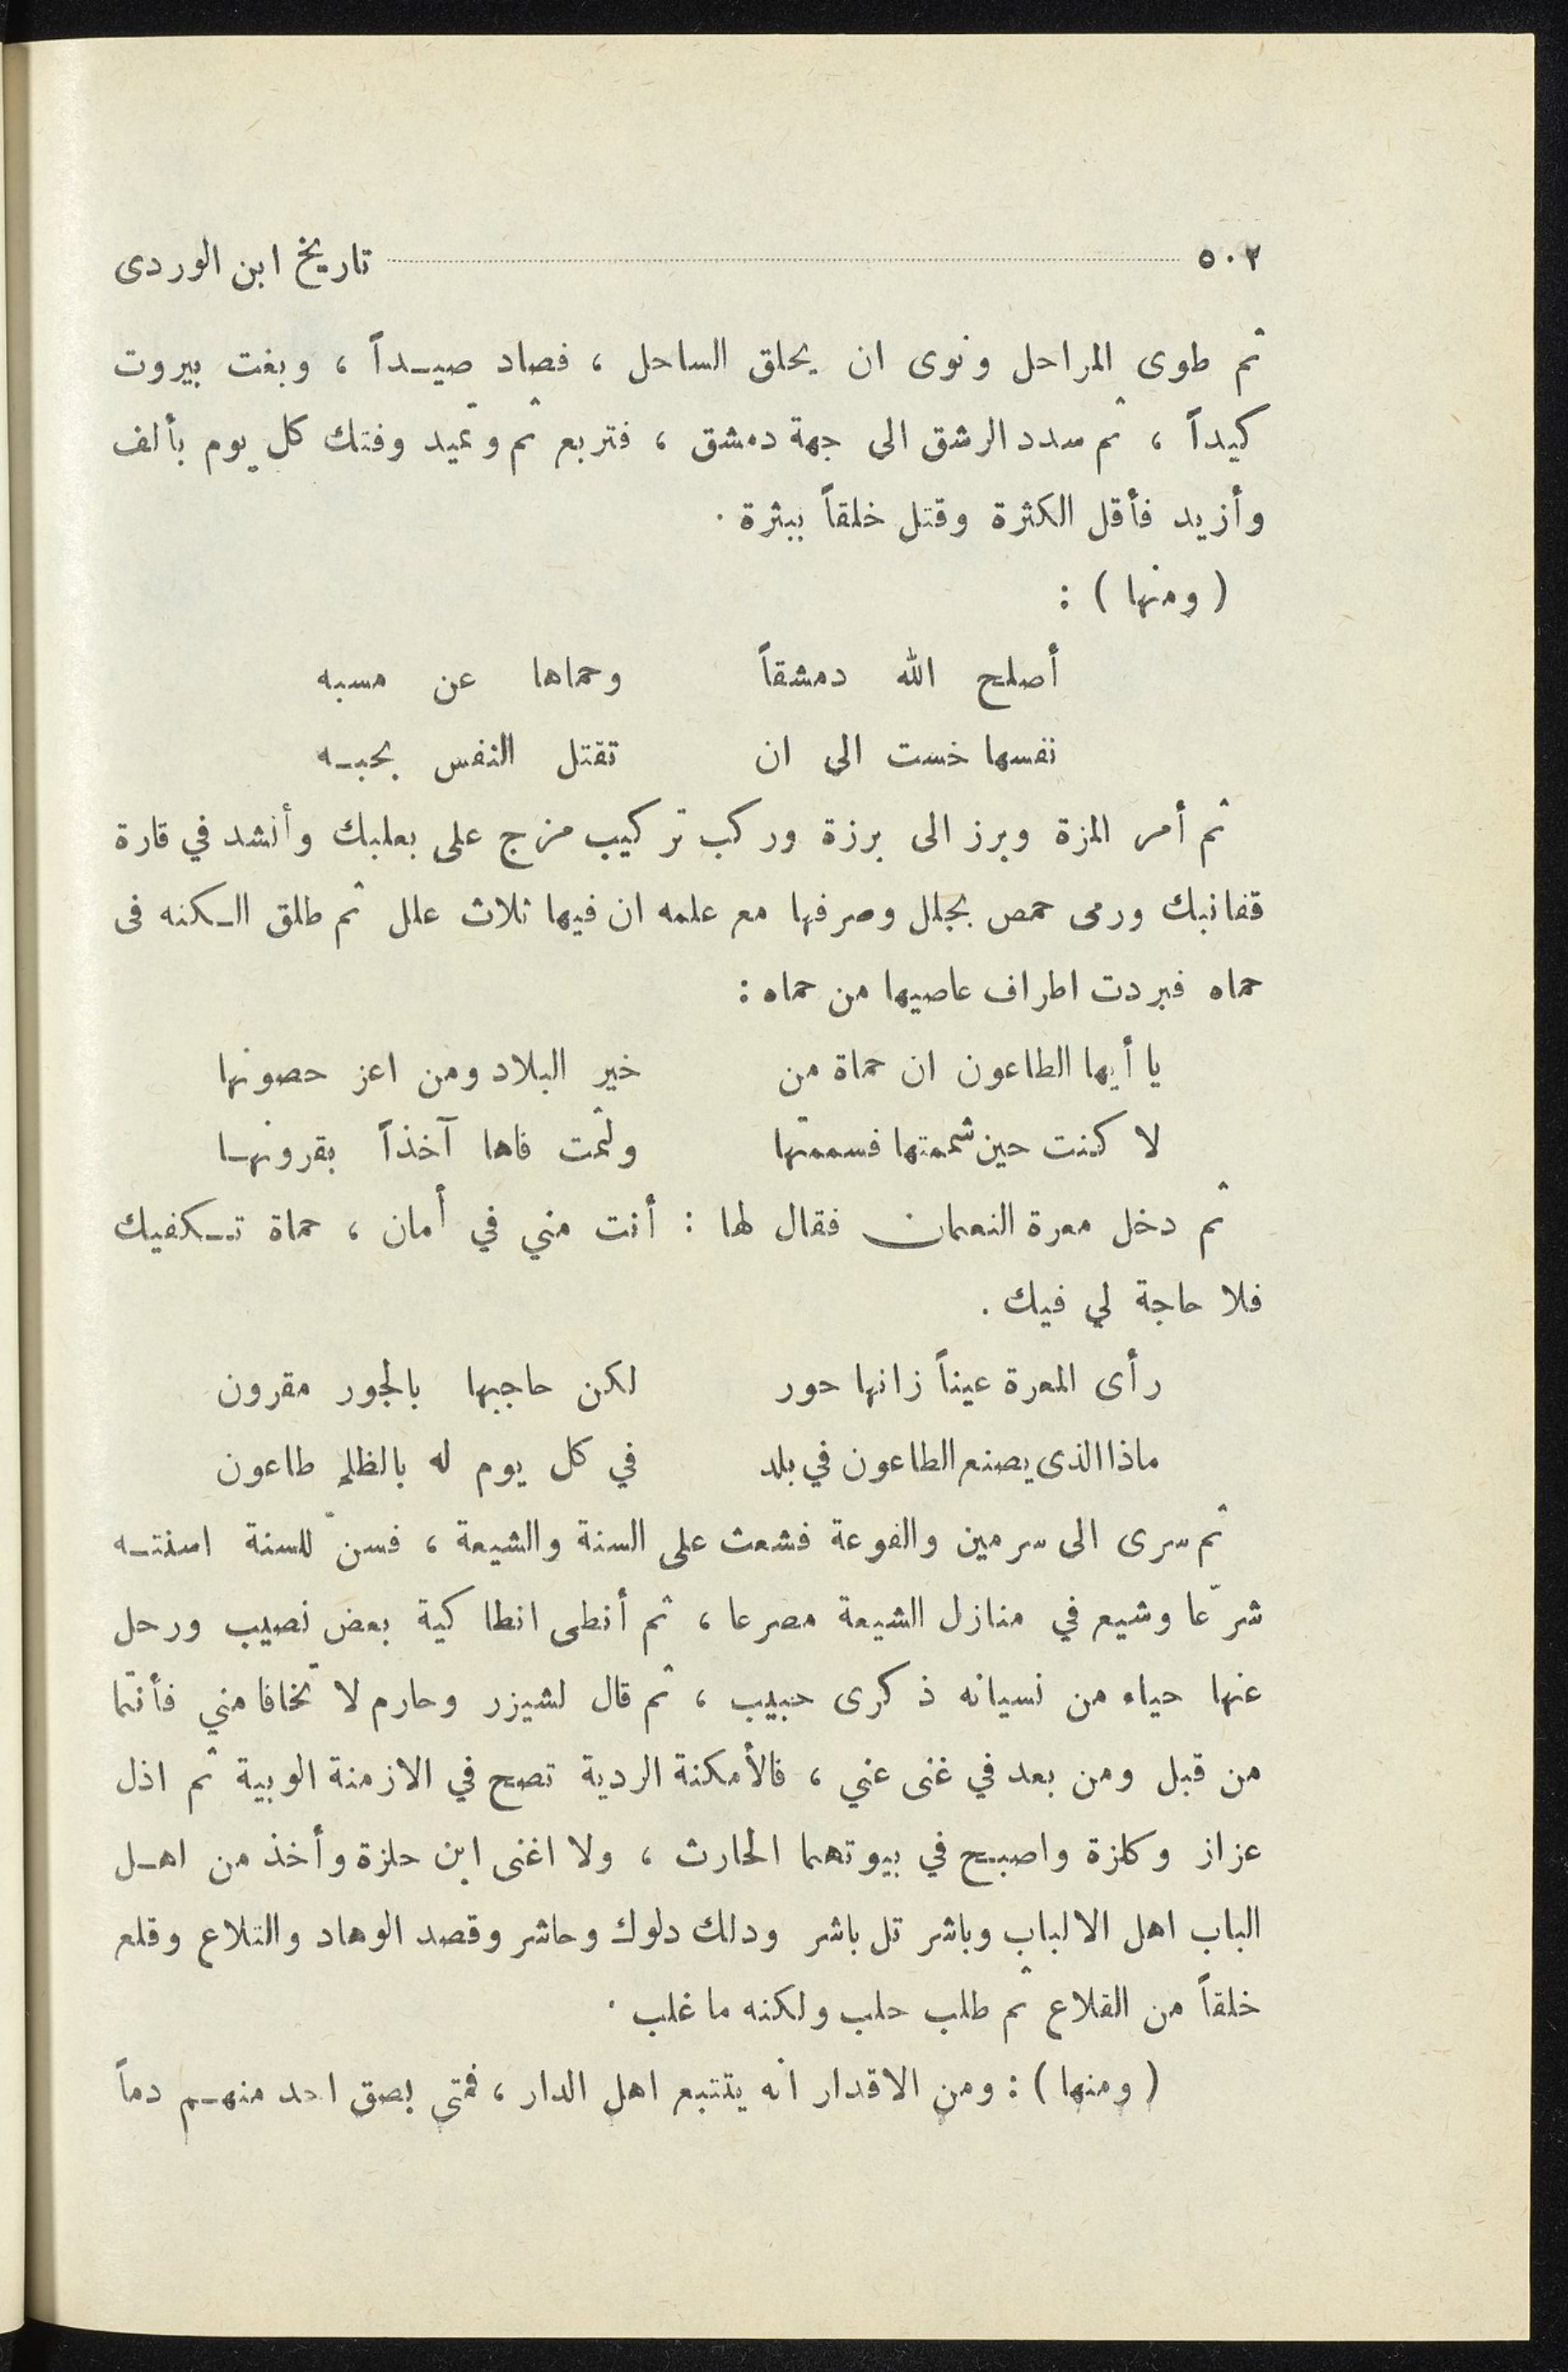 ٥٠٢ تاريخ ابن الوردى
ثم طوى المراحل ونوى ان يحلق الساحل ، فصاد صيداً ، وبغت بيروت
كيداً ، ثم سدد الرشق الى جهة دمشق ، فتربع ثم وتميد وفتك كل يوم بألف
وأزيد فأقل الكثرة وقتل خلقاً ببثرة .
( ومنها ) :
أصلح الله دمشقاً وحماها عن مسبه
نفسها خست الى ان تقتل النفس بحبه
ثم أمر المزة وبرز الى برزة وركب تركيب مزج على بعلبك وأنشد في قارة
قفانبك ورمى حمص بجلل وصرفها مع علمه ان فيها ثلاث علل ثم طلق الكنه فى
حماه فبردت اطراف عاصيها من حماه :
يا أيها الطاعون ان حماة من خير البلاد ومن اعز حصونها
لا كنت حين شممتها فسممتها ولثمت فاها آخذاً بقرونها
ثم دخل معرة النعمان فقال لها : أنت مني في أمان ، حماة تكفيك
فلا حاجة لي فيك .
رأى المعرة عيناً زانها حور لكن حاجبها بالجور مقرون
ماذا الذى يصنع الطاعون في بلد في كل يوم له بالظلم طاعون
ثم سرى الى سرمين والفوعة فشعث على السنة والشيعة ، فسنّ للسنة اسنته
شرّعا وشيع في منازل الشيعة مصرعا ، ثم أنطى انطاكية بعض نصيب ورحل
عنها حياء من نسيانه ذكرى حبيب ، ثم قال لشيزر وحارم لا تخافا مني فأنتما
من قبل ومن بعد في غنى عني ، فالأمكنة الردية تصح في الازمنة الوبية ثم اذل
عزاز وكلزة واصبح في بيوتهما الحارث ، ولا اغنى ابن حلزة وأخذ من اهل
الباب اهل الالباب وباشر تل باشر ودلك دلوك وحاشر وقصد الوهاد والتلاع وقلع
خلقاً من القلاع ثم طلب حلب ولكنه ما غلب .
( ومنها ) : ومن الاقدار انه يتتبع اهل الدار ، فمتى بصق احد منهم دماً